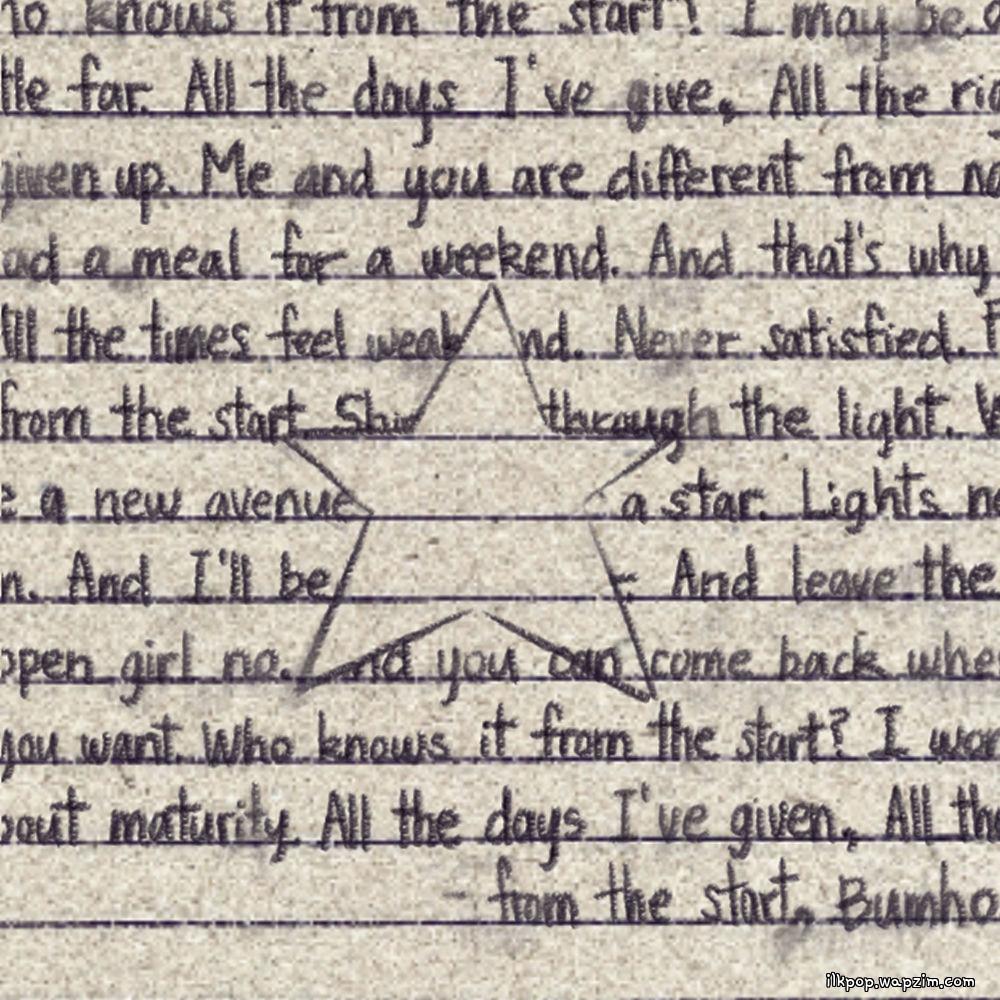 knows it from the start? I may be
far. All the days I've give, All the
up. Me and you are different from
a meal for a weekend. And that's why
the times feel weak nd. Never satisfied.
from the start Shi through the light.
a new avenue a star. Lights
n. And I'll be r. And leave the
open girl no. And you can come back
you want. Who knows it from the start? I
maturity. All the days I've given, All
- from the start, Bumho
ilkpop.wapzim.com